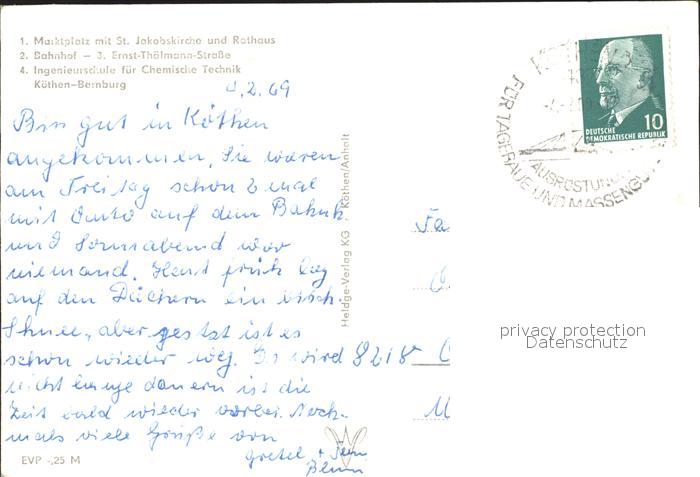 1. Marktplatz mit St. Jakobskirche und Rathaus
2. Bahnhof – 3. Ernst-Thälmann-Straße
4. Ingenieurschule für Chemische Technik
Köthen-Bernburg
4.2.69
Bin gut in Köthen
angekommen, Sie waren
am Freitag schon 2 mal
mit Auto auf dem Bahnh.
und Sonnabend war
niemand. Heut früh lag
auf den Dächern ein bisch.
Schnee, aber jetzt ist es
schon wieder weg. Es wird
nicht lange dauern ist die
Zeit bald wieder vorbei. Noch-
mals viele Grüße von
Gretel +
Blum
EVP -,25 M
Heldge-Verlag KG Köthen/Anhalt
DEUTSCHE
DEMOKRATISCHE REPUBLIK
10
FÜR TAGEBAUE UND MASSENGU
AUSRÜSTUN
Fa
8218
privacy protection
Datenschutz